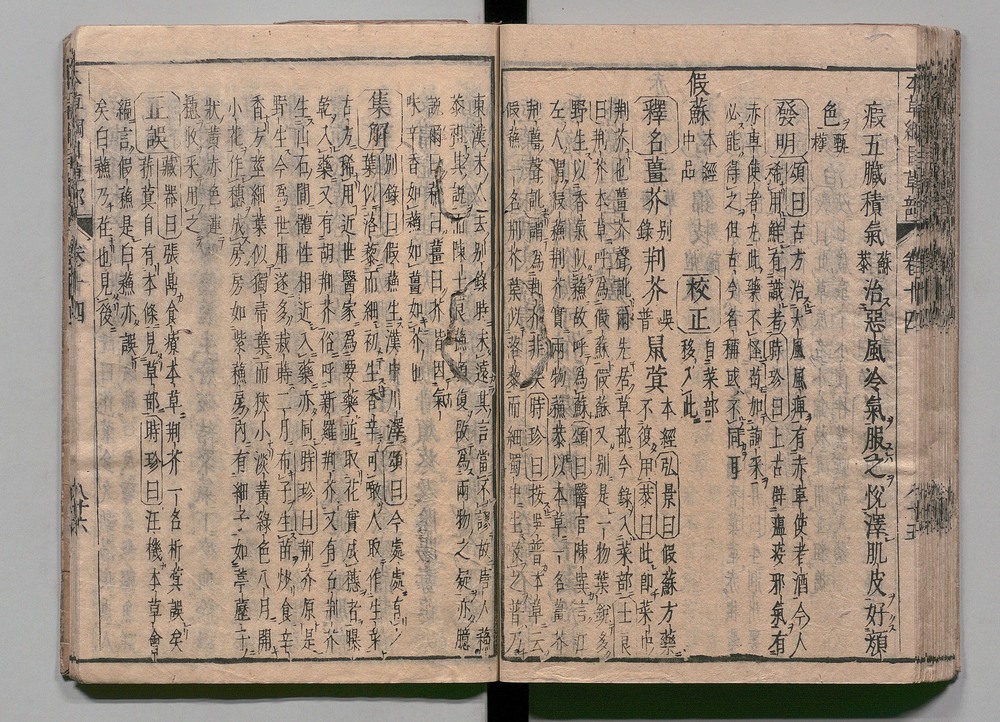 瘕五臟積氣蘇恭治惡風冷氣服之悅澤肌皮好顏
色甄權
發明頌曰古方治大風風痺有赤草使者酒今人
稀用鮮有識者時珍曰上古辟瘟疫邪氣有
赤草使者此藥不怪苟如詢采
必能得之但古今名稱或不同耳
假蘇本經中品校正自菜部移入此
釋名薑芥別錄荊芥吳普鼠蓂本經弘景曰假蘇方藥
不復用恭曰此即菜中
荊芥也薑芥聲訛爾先居草部今錄入菜部士良
曰荊芥本草呼為假蘇假蘇又別是一物葉銳多
野生以香氣似蘇故呼為蘇頌曰醫官陳巽言江
左人謂假蘇荊芥實兩物蘇恭以本草一名薑芥
荊薑聲訛謂為荊芥非矣時珍曰按吳普本草云
假蘇一名荊芥葉似落藜而細蜀中生啖之普乃
東漢末人去別錄時未遠其言當不謬故唐人蘇
恭祖其說而陳士良蘇頌復啟為兩物之疑亦臆
說爾曰蘇曰薑曰芥皆因氣
味辛香如蘇如薑如芥也
集解別錄曰假蘇生漢中川澤頌曰今處處有之
葉似落藜而細初生香辛可噉人取作生菜
古方稀用近世醫家為要藥並取花實成穗者曝
乾入藥又有胡荊芥俗呼新羅荊芥又有石荊芥
生山石間體性相近入藥亦同時珍曰荊芥原是
野生今為世用遂多栽蒔二月布子生苗炒食辛
香方莖細葉似獨帚葉而狹小淡黃綠色八月開
小花作穗成房房如紫蘇房內有細子如葶藶子
狀黃赤色連穗收采用之
正誤藏器曰張鼎食療本草荊芥一名析蓂誤矣
析蓂自有本條見草部時珍曰汪機本草會
編言假蘇是白蘇亦誤
矣白蘇乃荏也見後